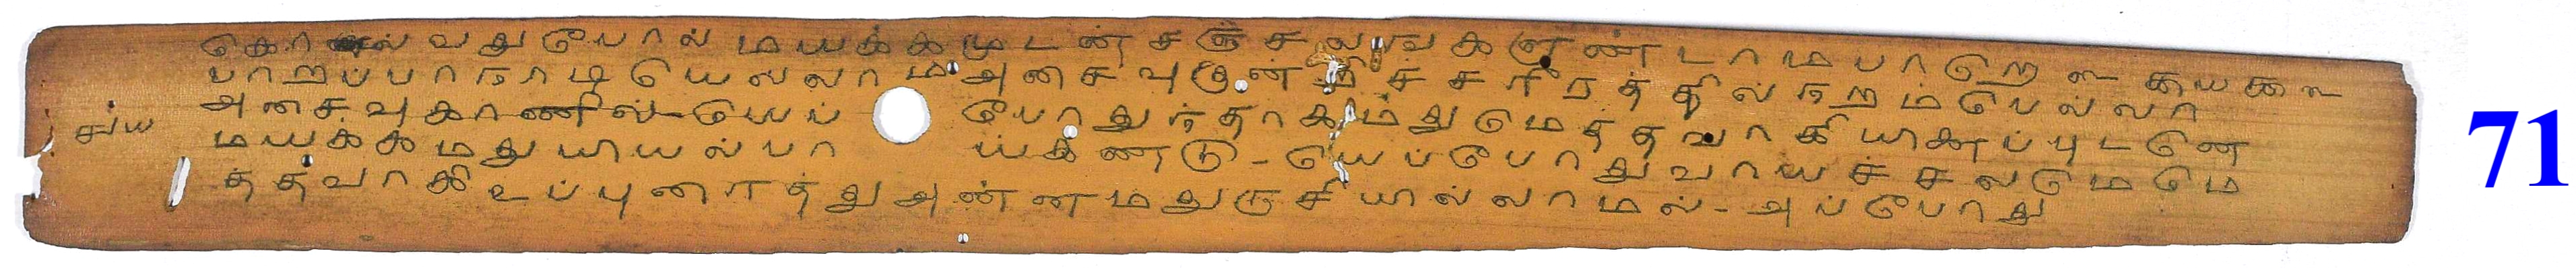 கொல்வதுபோல் மயக்கமுடன் சஞ்சலங்களுண்டாமபாறெ
பாறப்பாநாடியெலலாம அசைவுகுன்றிச்சரீரத்தில்நறம்பெல்லா
அசைவுகாணில் யெப போதுந்தாகம்துமெத்தவாகியாணப்புடனெ
சுய மயக்கமதுயாயல்பா ய்கணடு - யெப்போதுவாயச்சலமெமெ
த்தவாகிஉப்புரைத்துஅண்ணமதுருசியால்லாமல் - அப்போது
71